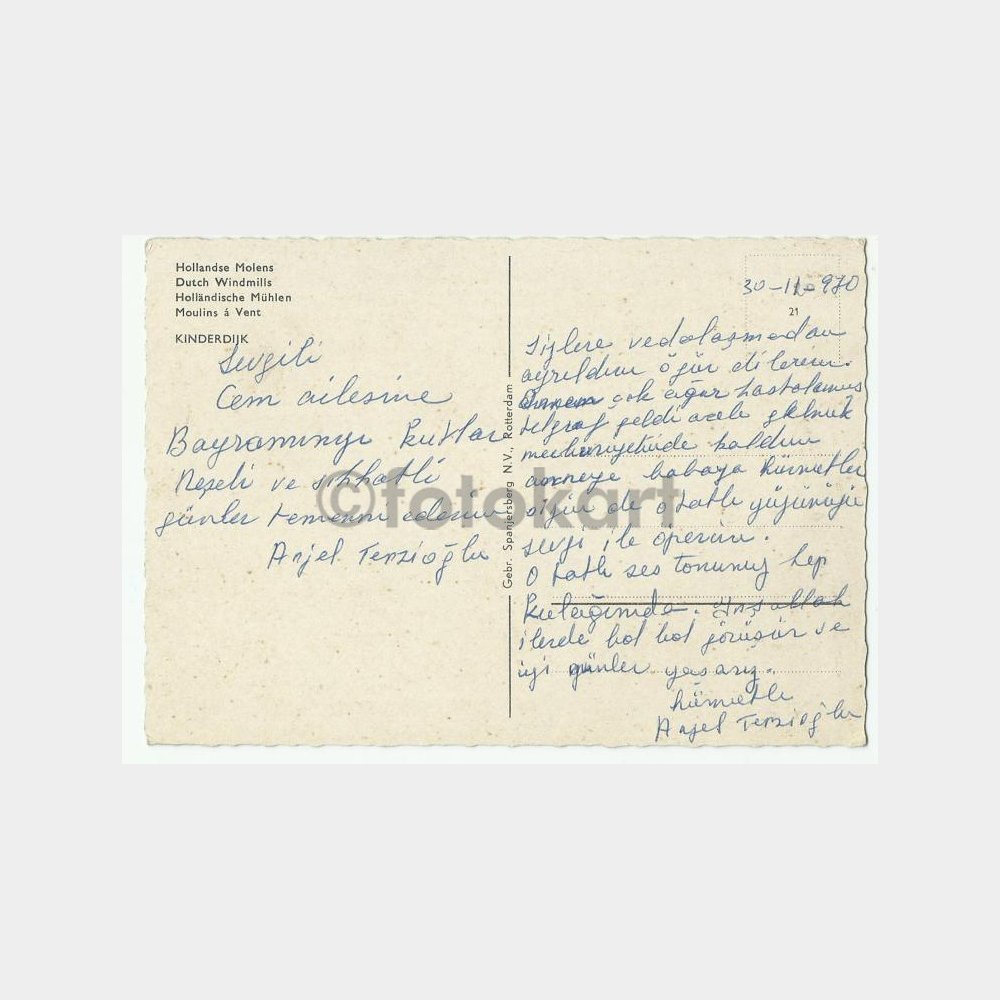 Hollandse Molens
Dutch Windmills
Holländische Mühlen
Moulins á Vent
KINDERDIJK
Sevgili
Cem ailesine
Bayramınızı kutlar
Neşeli ve sıhhatli
günler temenni ederim
Anjel Terzioğlu
Gebr. Spanjersberg N.V., Rotterdam
©fotokart
21
sizlere vedalaşmadan
ayrıldım özür dilerim.
Annem çok ağır hastalanmış
telgraf geldi acele gelmek
mecburiyetinde kaldım
anneye babaya hürmetler
sizin de o tatlı yüzünüzü
sevgi ile öperim.
O tatlı ses tonunuz hep
kulağımda. İnşallah
ilerde bol bol görüşür ve
iyi günler yaşarız.
hürmetle
Anjel Terzioğlu